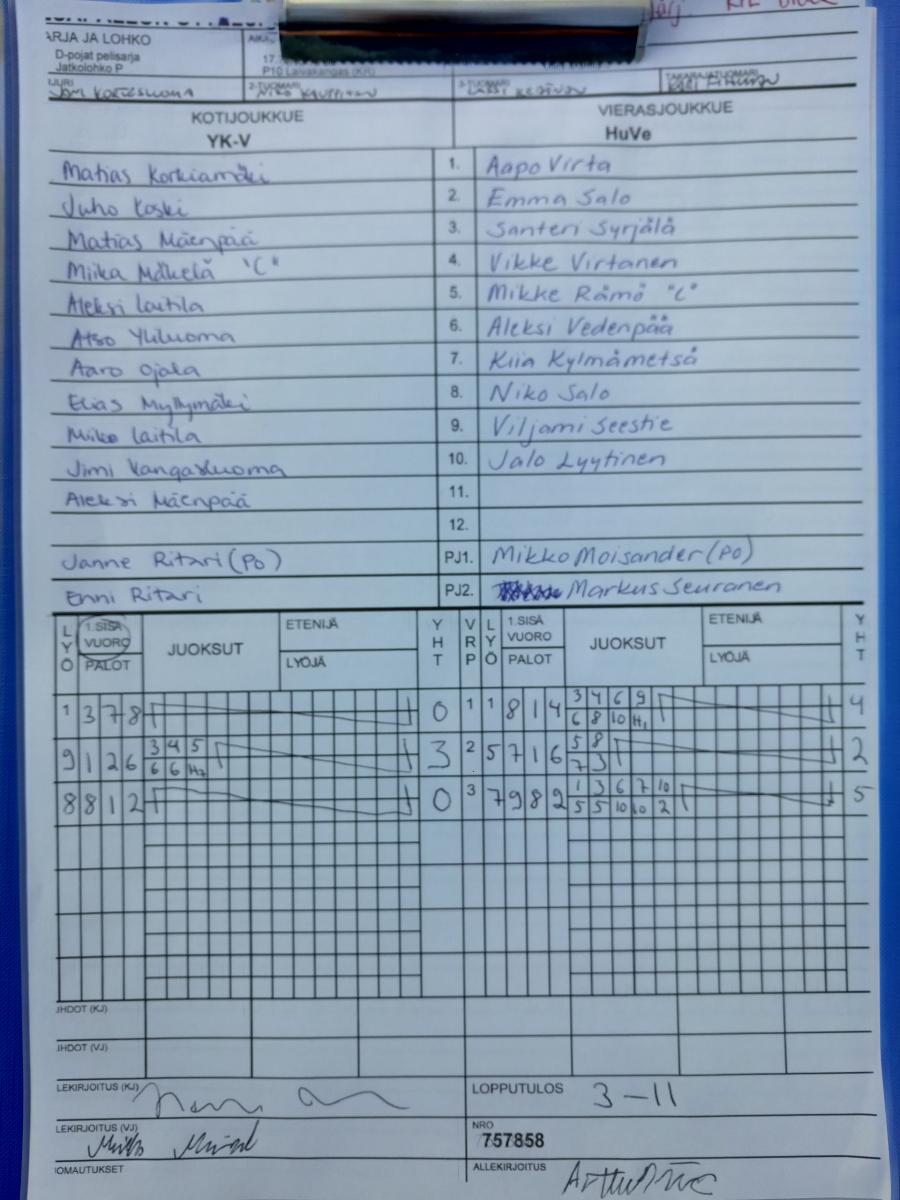 ARJA JA LOHKO
D-pojat pelisarja
Jatkolohko P
17.
P10 Laivakangas (KR)
2-TUOMARI
3-TUOMARI
TAKARAJATUOMARI
KOTIJOUKKUE VIERASJOUKKUE
YK-V HuVe
Matias Korkiamäki 1. Aapo Virta
Juho Koski 2. Emma Salo
Matias Mäenpää 3. Santeri Syrjälä
Miika Mäkelä "C" 4. Vikke Virtanen
Aleksi Laitila 5. Mikke Rämö "C"
Atso Yliluoma 6. Aleksi Vedenpää
Aaro Ojala 7. Kiia Kylmämetsä
Elias Myllymäki 8. Niko Salo
Miiko Laitila 9. Viljami Seestie
Jimi Kangasluoma 10. Jalo Lyytinen
Aleksi Mäenpää 11.
12.
Janne Ritari (PO) PJ1. Mikko Moisander (PO)
Enni Ritari PJ2. Markus Seuranen
LYÖ 1.SISÄ VUORO PALOT JUOKSUT ETENIJÄ LYÖJÄ YHT VRP LYÖ 1.SISÄ VUORO PALOT JUOKSUT ETENIJÄ LYÖJÄ YHT
1 3 7 8 0 1 1 8 1 4 3 4 6 9 4
6 8 10 H1
9 1 2 6 3 4 5 3 2 5 7 1 6 5 8 2
6 6 H2 7 3
8 8 1 2 0 3 7 9 8 2 1 3 6 7 10 5
5 5 10 10 2
IHDOT (KJ)
IHDOT (VJ)
LEKIRJOITUS (KJ) LOPPUTULOS 3-11
LEKIRJOITUS (VJ) NRO
757858
IOMAUTUKSET ALLEKIRJOITUS